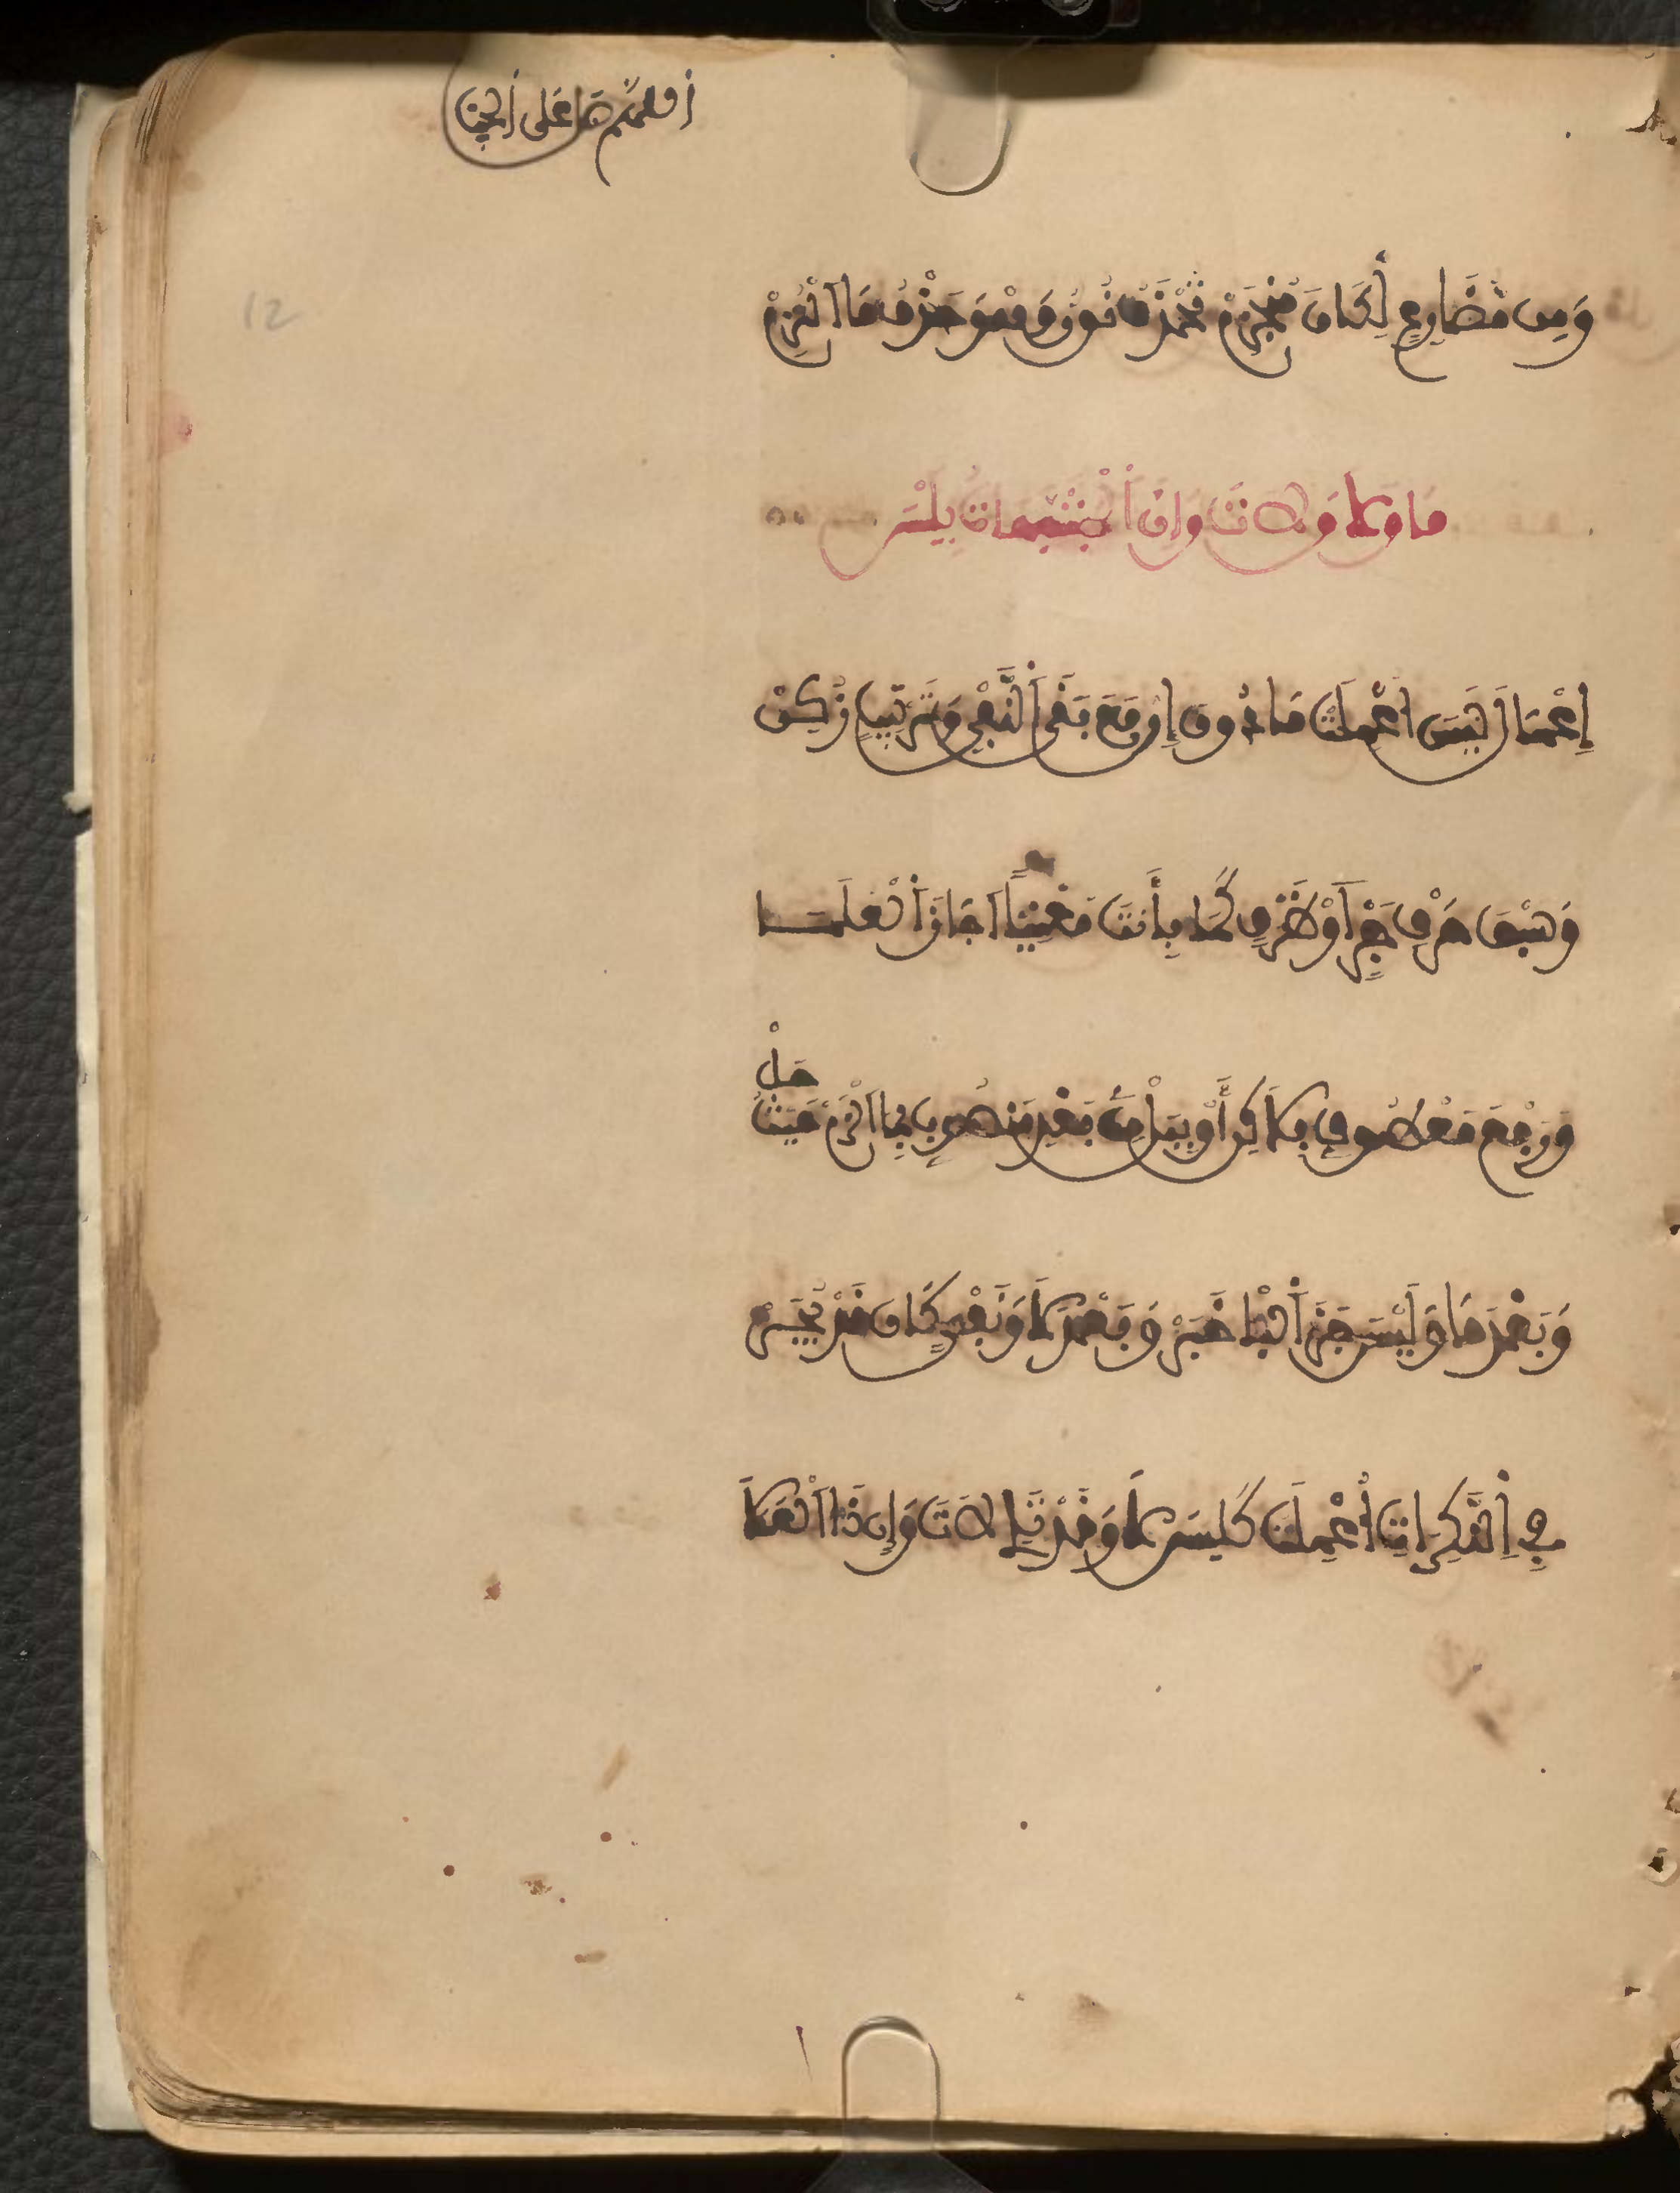 12
وَمِن مُّضَارِعٍ لِكَانَ مُنْجَزِمْ تُحْذَفُ نُونٌ وَهْوَ حَذْفٌ مَا الْتُزِمْ
مَا وَلَا وَلَاتَ وَإِن اَلْمُشَبَّهَاتِ بِلَيْسَ
إِعْمَالَ لَيْسَ أُعْمِلَتْ مَا دُونَ إِن مَعَ بَقَى اَلنَّفْيِ وَتَرْتِيبٍ زُكِنْ
وَسَبْقَ حَرْفِ جَرٍّ أَوْ ظَرْفٍ كَمَا بِي أَنتَ مَعْنِيّاً أَجَازَ اَلْعُلَمَا
وَرَفْعَ مَعْطُوفٍ بِلَكِنْ أَوْ بِبَلْ مِن بَعْدِ مَنصُوبٍ بِمَا اَلْزَمْ حَيْثُ حَلْ
وَبَعْدَ مَا وَلَيْسَ جَرَّ اَلْبَا خَبَرْ وَبَعْدَ لَا وَنَفْيِ كَانَ قَدْ يُجَرْ
فِي اِلنَّكِرَاتِ أُعْمِلَتْ كَلَيْسَ لَا وَقَدْ تَلِي لَاتَ وَإِن ذَا اَلْعَمَلَا